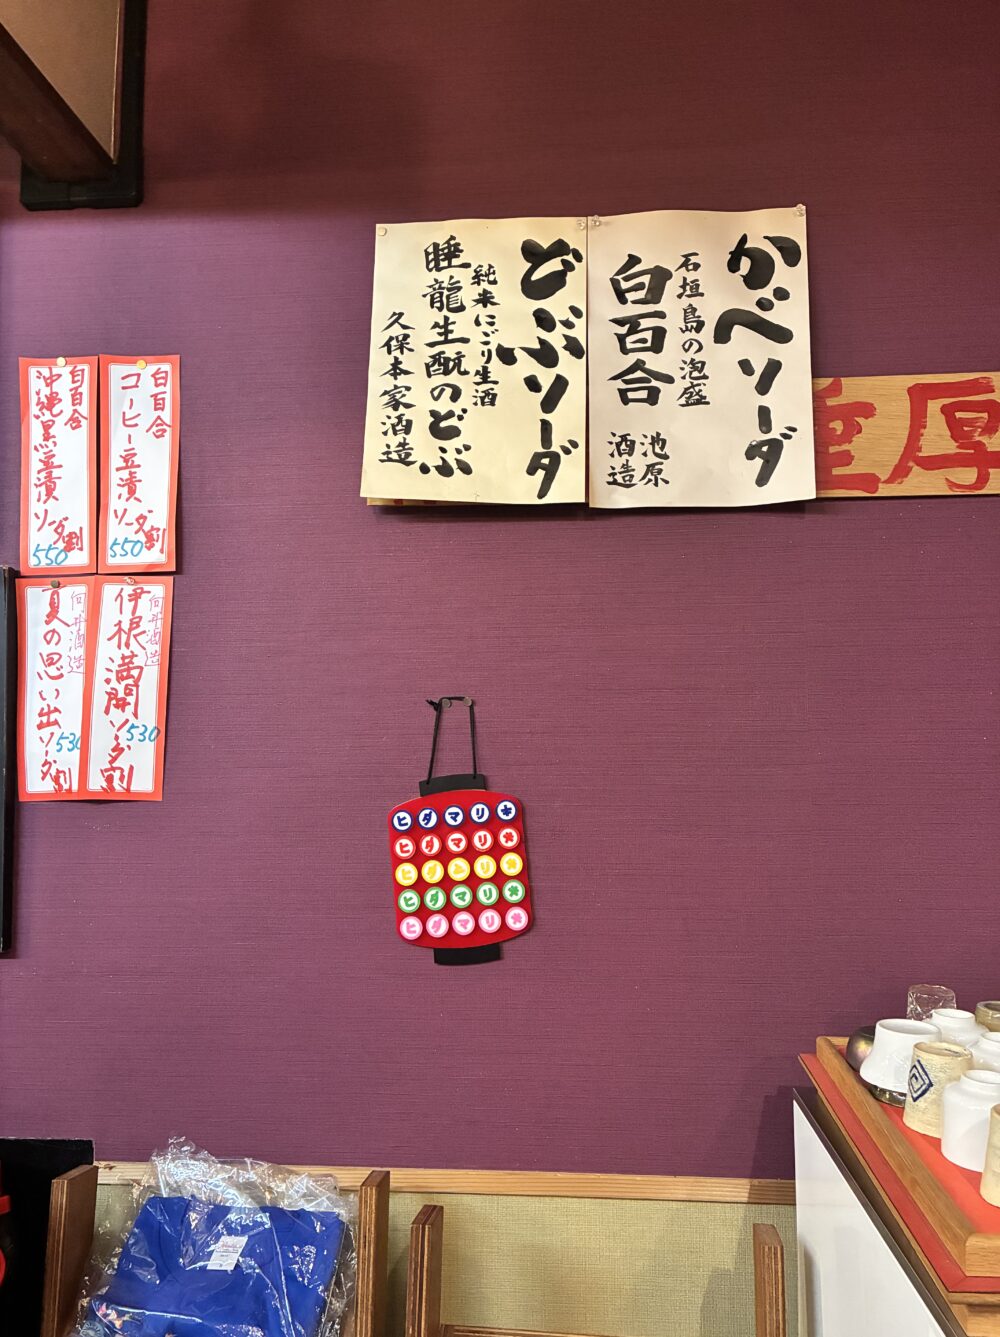 かべソーダ
石垣島の泡盛
白百合
池原
酒造
どぶソーダ
純米にごり生酒
睡龍生酛のどぶ
久保本家酒造
白百合
コーヒー豆漬ソーダ割
550
白百合
沖縄黒豆漬ソーダ割
550
向井酒造
伊根満開ソーダ割
530
向井酒造
夏の思い出ソーダ割
530
ヒダマリ
ヒダマリ
ヒダマリ
ヒダマリ
ヒダマリ
厚